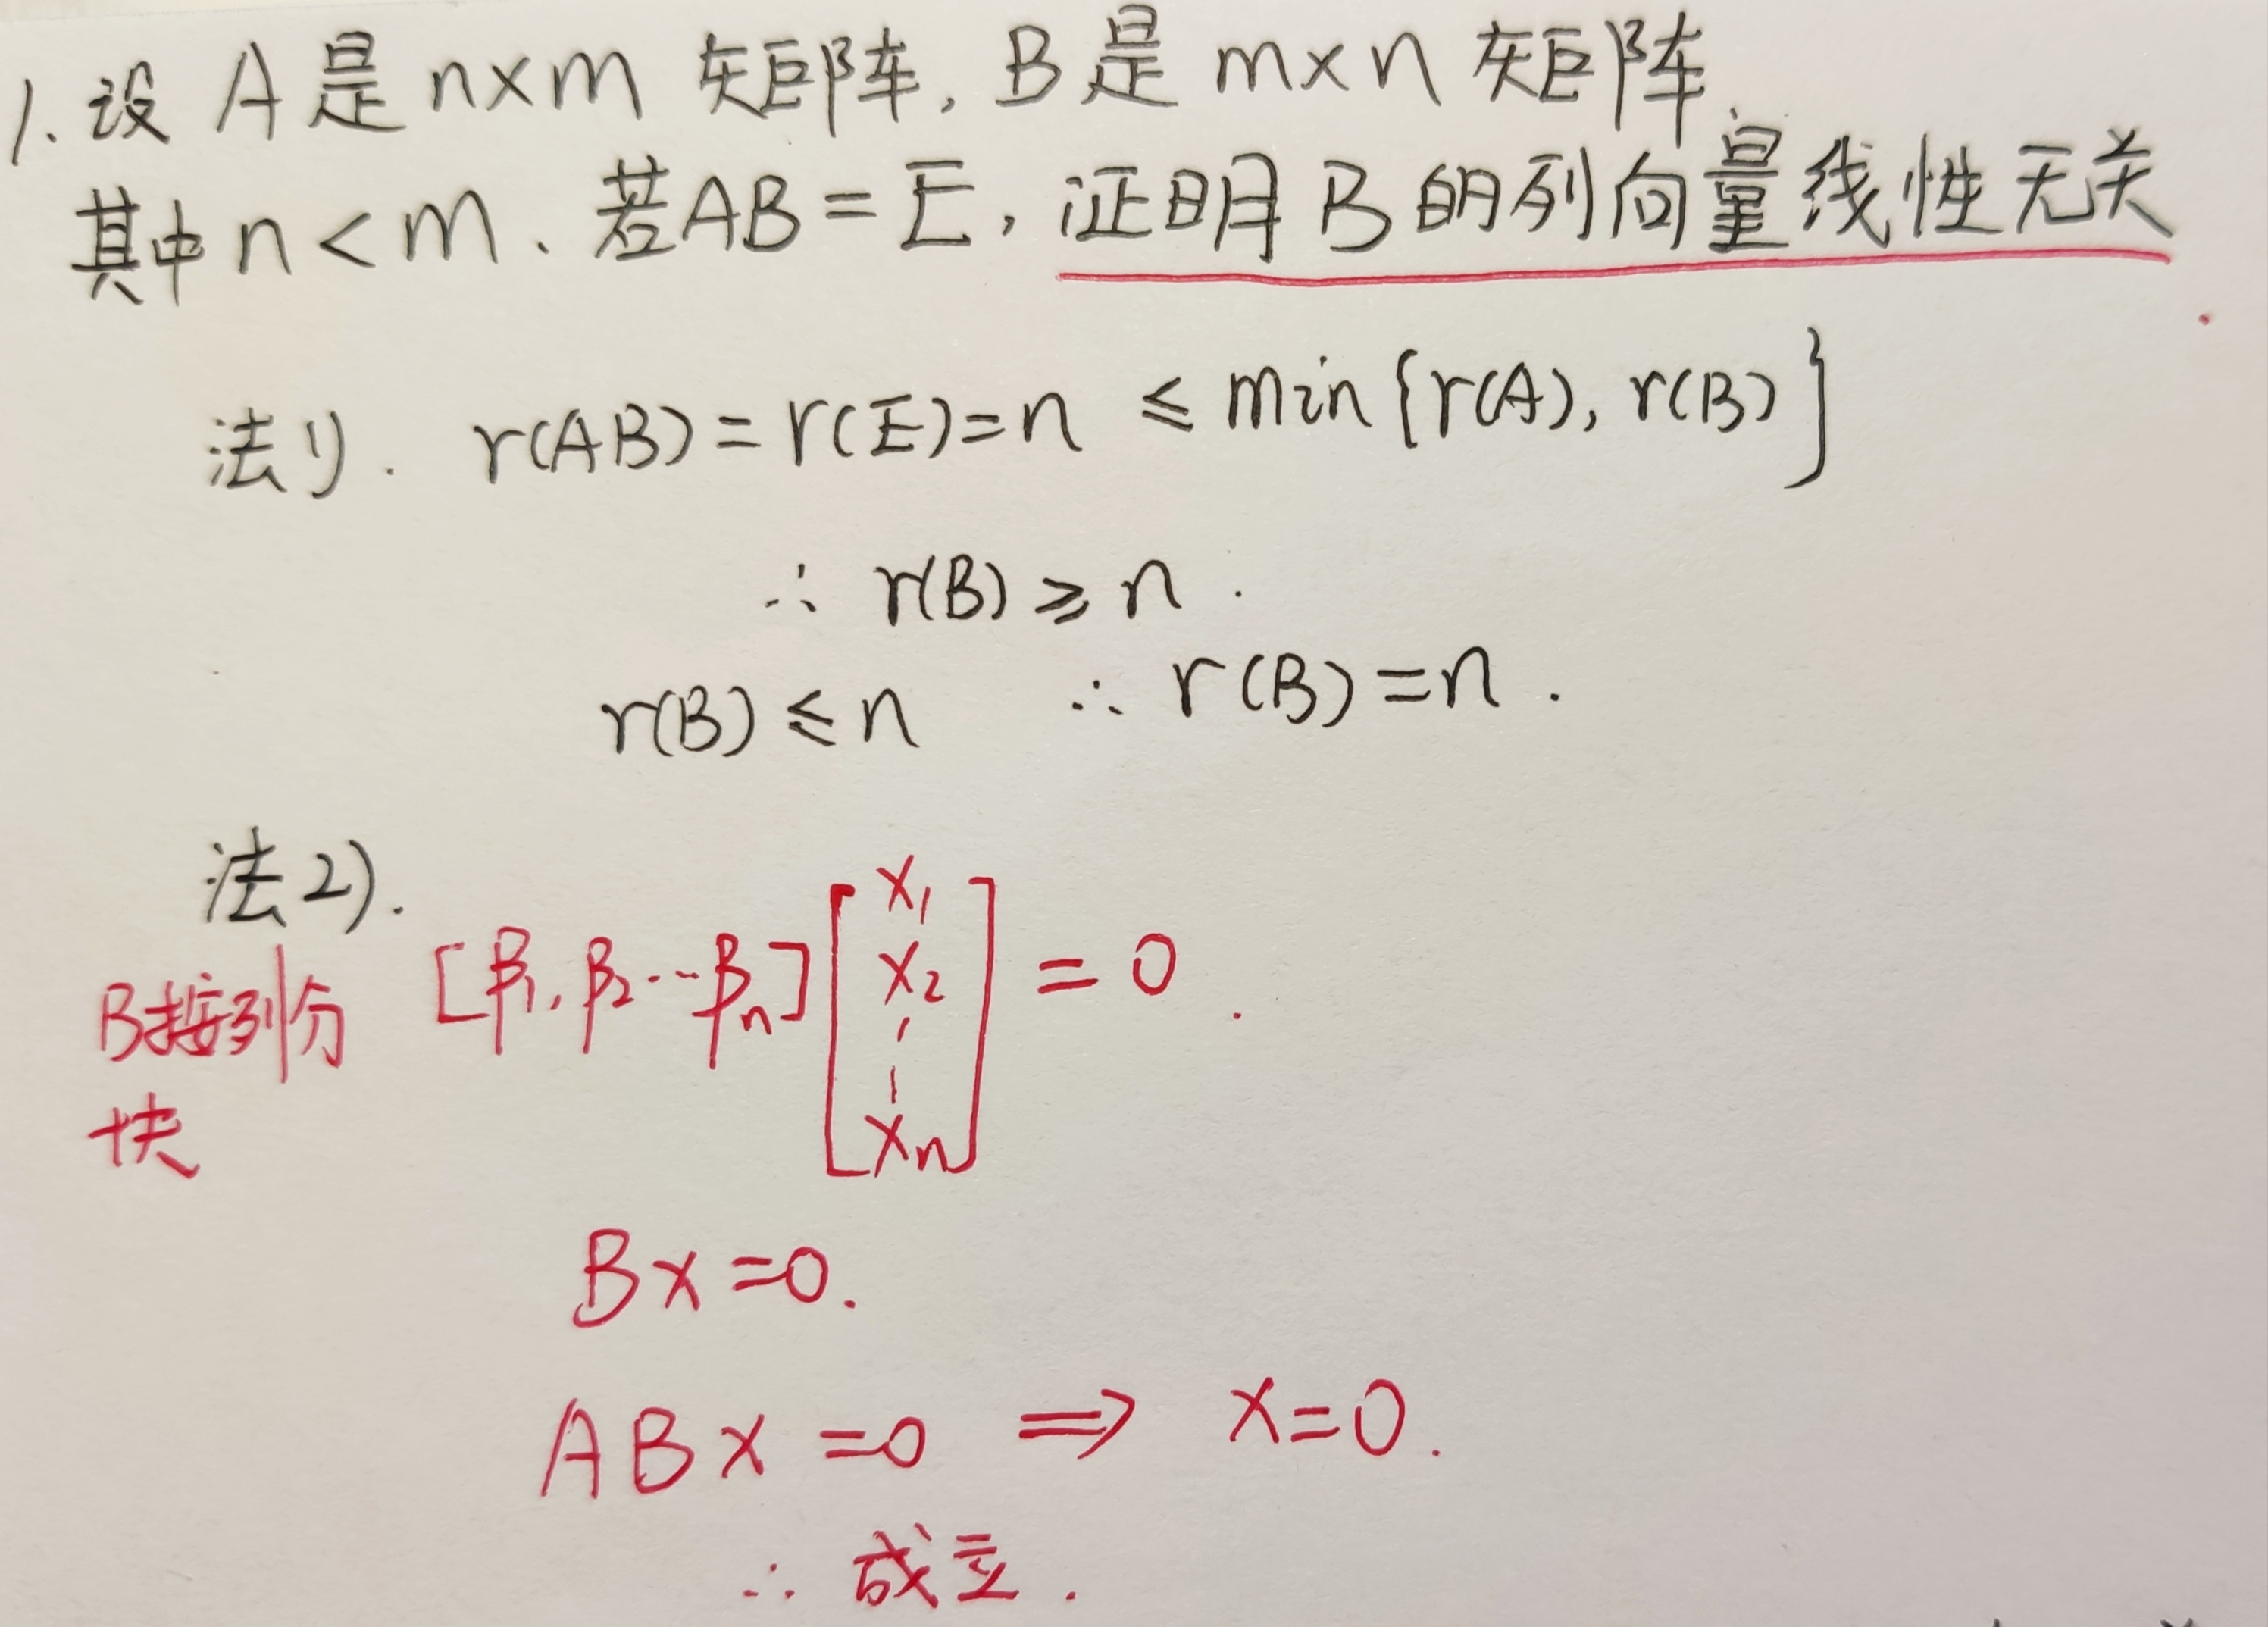 1. 设 A 是 n×m 矩阵, B 是 m×n 矩阵,
其中 n < m. 若 AB = E, 证明 B 的列向量线性无关
法1). r(AB) = r(E) = n ≤ min {r(A), r(B)}
∴ r(B) ≥ n.
r(B) ≤ n ∴ r(B) = n.
法2).
B按列分块 [β₁, β₂ ⋯ βₙ] [x₁ x₂ ⋮ xₙ] = 0.
Bx = 0.
ABx = 0 ⟹ x = 0.
∴ 成立.